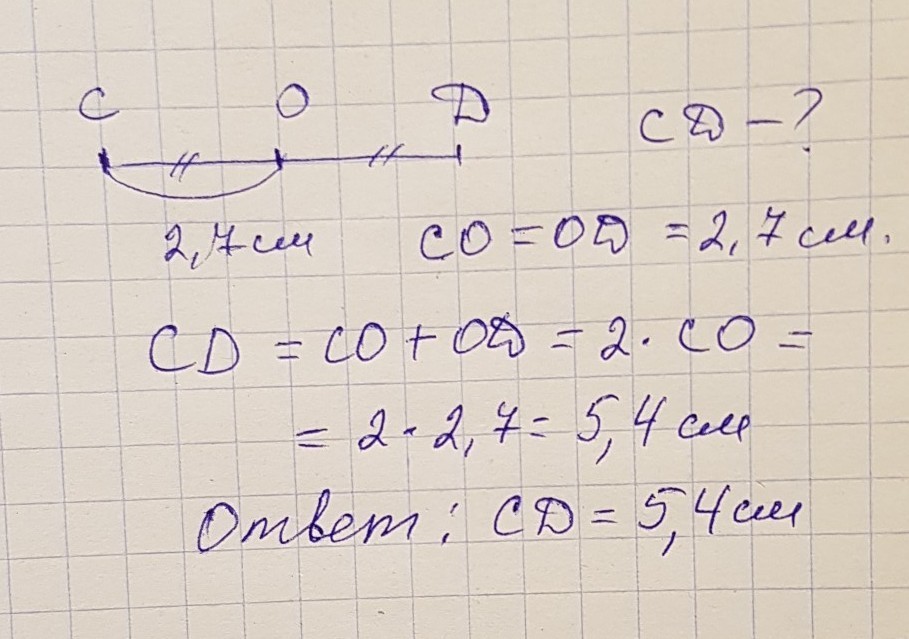 C O D
CD - ?
2,7 см CO = OD = 2,7 см.
CD = CO + OD = 2 · CO =
= 2 · 2,7 = 5,4 см
Ответ: CD = 5,4 см